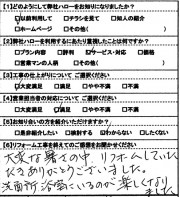 【1】どのようにして弊社ハローをお知りになりましたか？
☑以前利用して □チラシを見て □知人の紹介
□ホームページ □その他(
【2】弊社ハローを利用するにあたり重視したことは何ですか？
□プラン内容 □評判 □サービス・対応 □価格
□営業マンの人柄 □その他(
【3】工事の仕上がりについてご選択ください
□大変満足 □満足 □やや不満 □不満
【4】営業担当者の対応についてご選択ください
□大変満足 □満足 □やや不満 □不満
【5】お知り合いの方を紹介いただけますか？
□是非紹介したい □検討する □わからない □したくない
【6】リフォーム工事を終えてのご感想をお聞かせください
大変な暑さの中、リフォームしていた
だきありがとうございました。
洗面所、浴室ているのが楽しくなり
ました